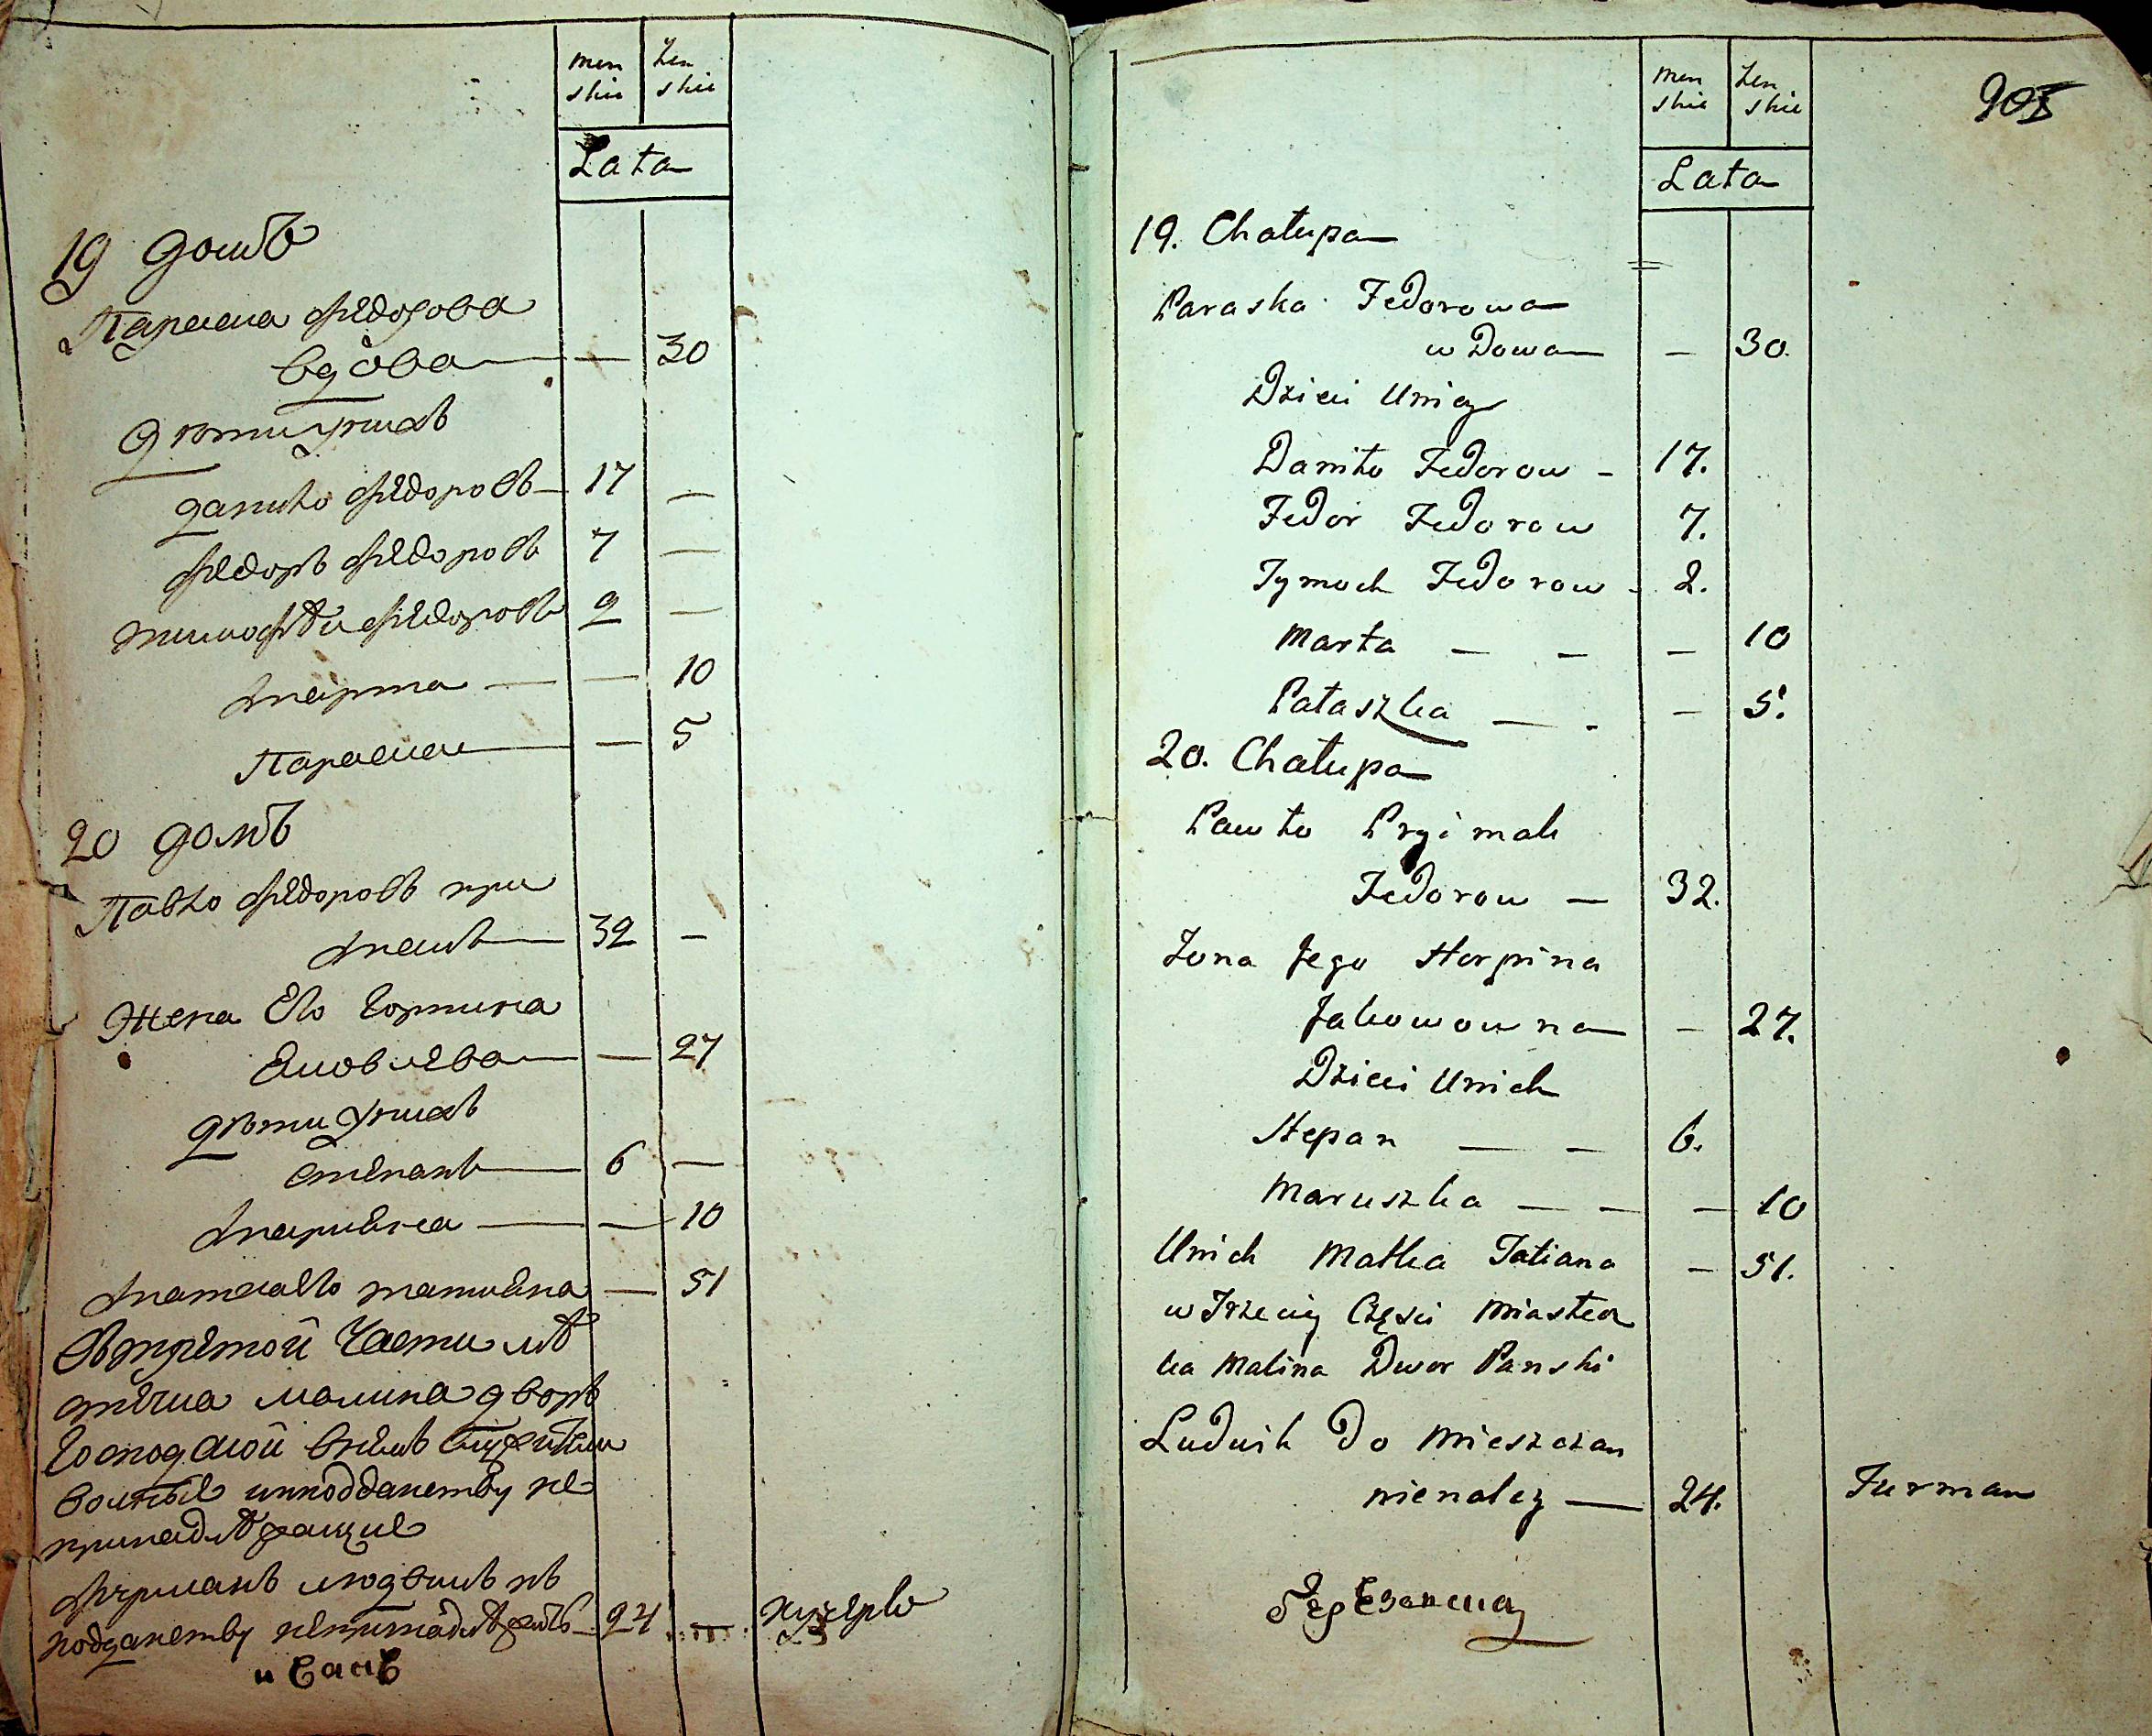 men Żen
skie skie
Lata
19 домъ
Параска Федорова
вдова — — 30
дѣти у нихъ
данило Федоровъ — 17 —
Федоръ Федоровъ 7 —
тимофѣи Федоровъ 2 —
марта — — 10
Параска — — 5
20 домъ
Павло Федоровъ при
макъ — 32 —
Жена Его Горпина
Яковлева — — 27
дѣти у нихъ
степанъ — 6 —
мариана — — 10
мать его татиана — 51
въ третой Части мѣ
стечка малина дворъ
Господской въ немъ
волные и подданству не
принадлѣжащие
Фурманъ людвикъ къ
подданству не принадлѣжитъ — 24 — кучеръ
men Żen
skie skie
Lata
19. Chałupa
Paraska Fedorowa
wdowa — 30.
Dzieci Uniey
Daniło Fedorow — 17.
Fedor Fedorow 7.
Tymoch Fedorow — 2.
Marta — — — 10
Paraszka — — — 5.
20. Chałupa
Pawło Pryimak
Fedorow — 32.
Żona Jego Horpina
Jakowowna — 27.
Dzieci Unich
Stepan — — 6.
Maruszka — — — 10
Unich Matka Tatiana — 51.
w Trzeciey Części Miastecz
ka Malina Dwor Panski
Ludwik Do Mieszczan
nienależy — 24. Furman